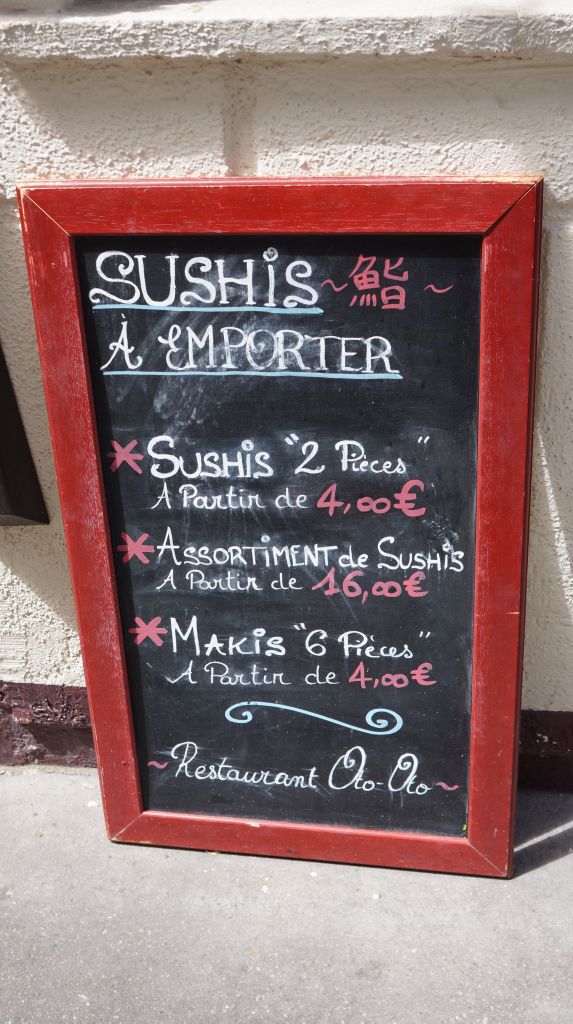 SUSHIS ~ 鮨 ~
À EMPORTER
* SUSHIS "2 Pièces"
A Partir de 4,00€
* ASSORTIMENT de SUSHIS
A Partir de 16,00€
* MAKIS "6 Pièces"
A Partir de 4,00€
~ Restaurant Oto-Oto ~